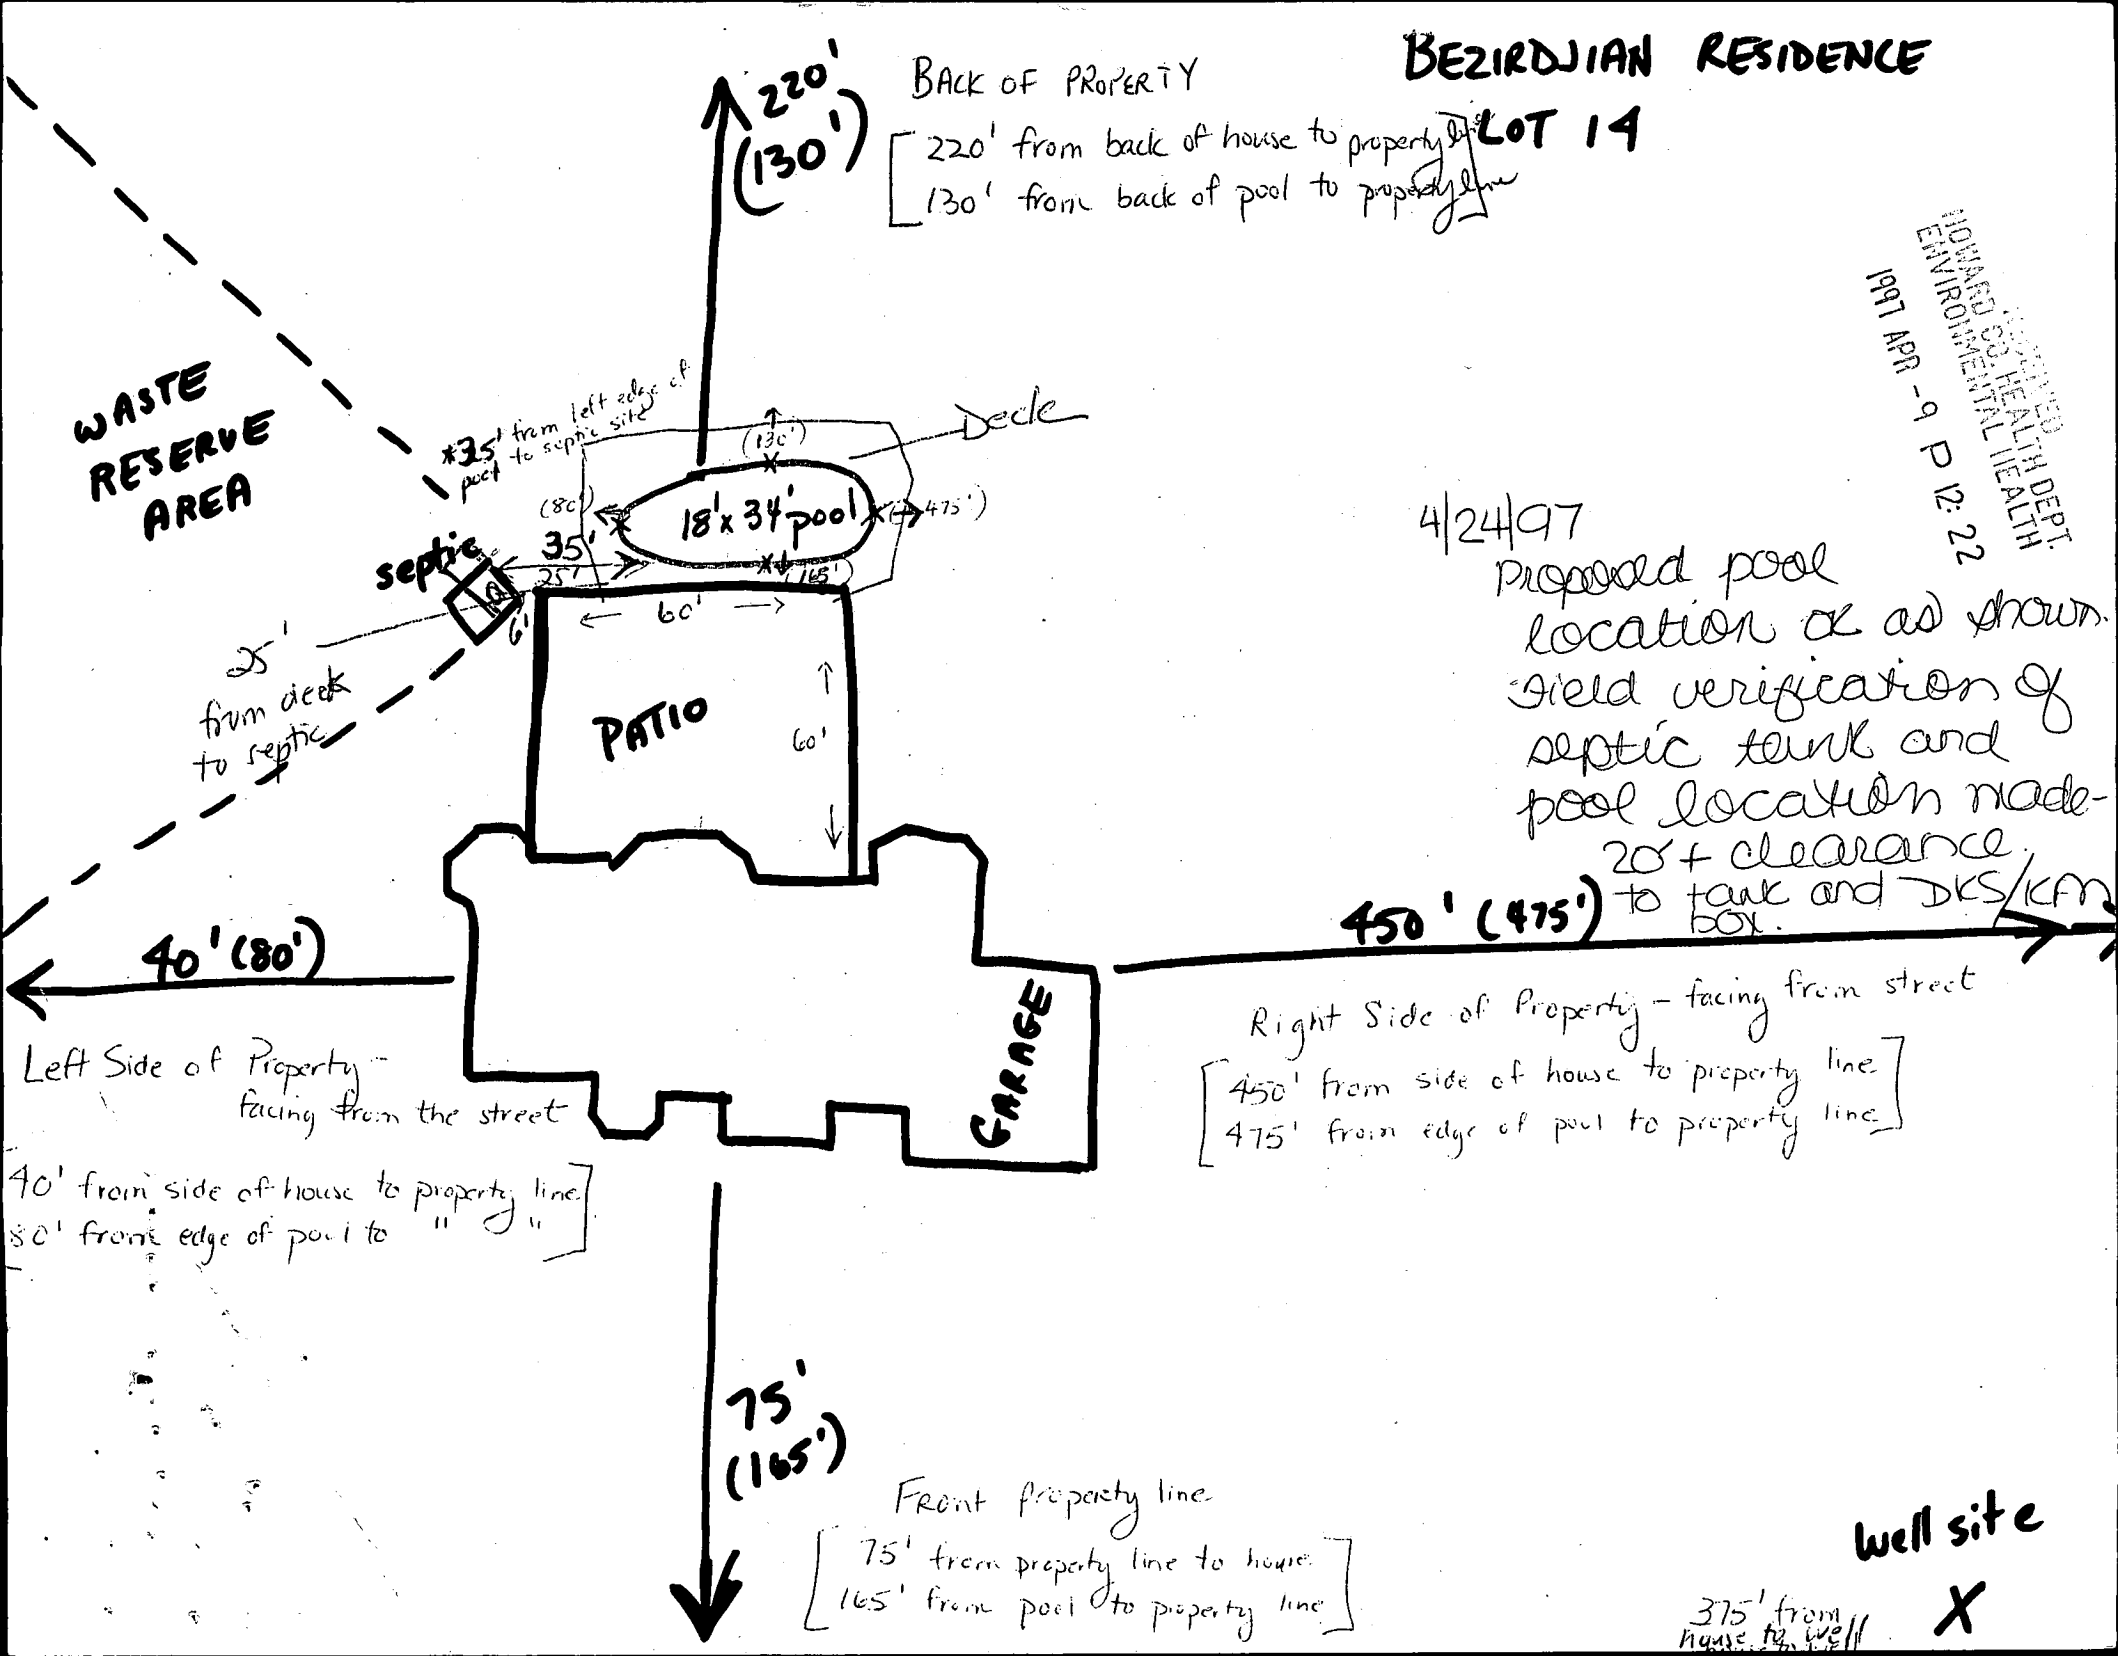 BEZIRDJIAN RESIDENCE
LOT 14
220'
(130')
BACK OF PROPERTY
220' from back of house to property line
130' from back of pool to property line
HOWARD CO. HEALTH DEPT.
ENVIRONMENTAL HEALTH
1997 APR -9 P 12: 22
WASTE
RESERVE
AREA
*35' from left edge of
pool to septic site
Deck
(130')
(80')
18' x 34' pool
(475')
septic
35'
25'
(165')
6'
60'
25'
from deck
to septic
PATIO
60'
4/24/97
Proposed pool
location ok as shown.
Field verification of
septic tank and
pool location made-
20'+ clearance
to tank and DKS/KFM
box.
40' (80')
450' (475')
GARAGE
Left Side of Property -
facing from the street
40' from side of house to property line
80' from edge of pool to " "
Right Side of Property - facing from street
450' from side of house to property line
475' from edge of pool to property line
75'
(165')
Front property line
75' from property line to house
165' from pool to property line
well site
X
375' from
house to well